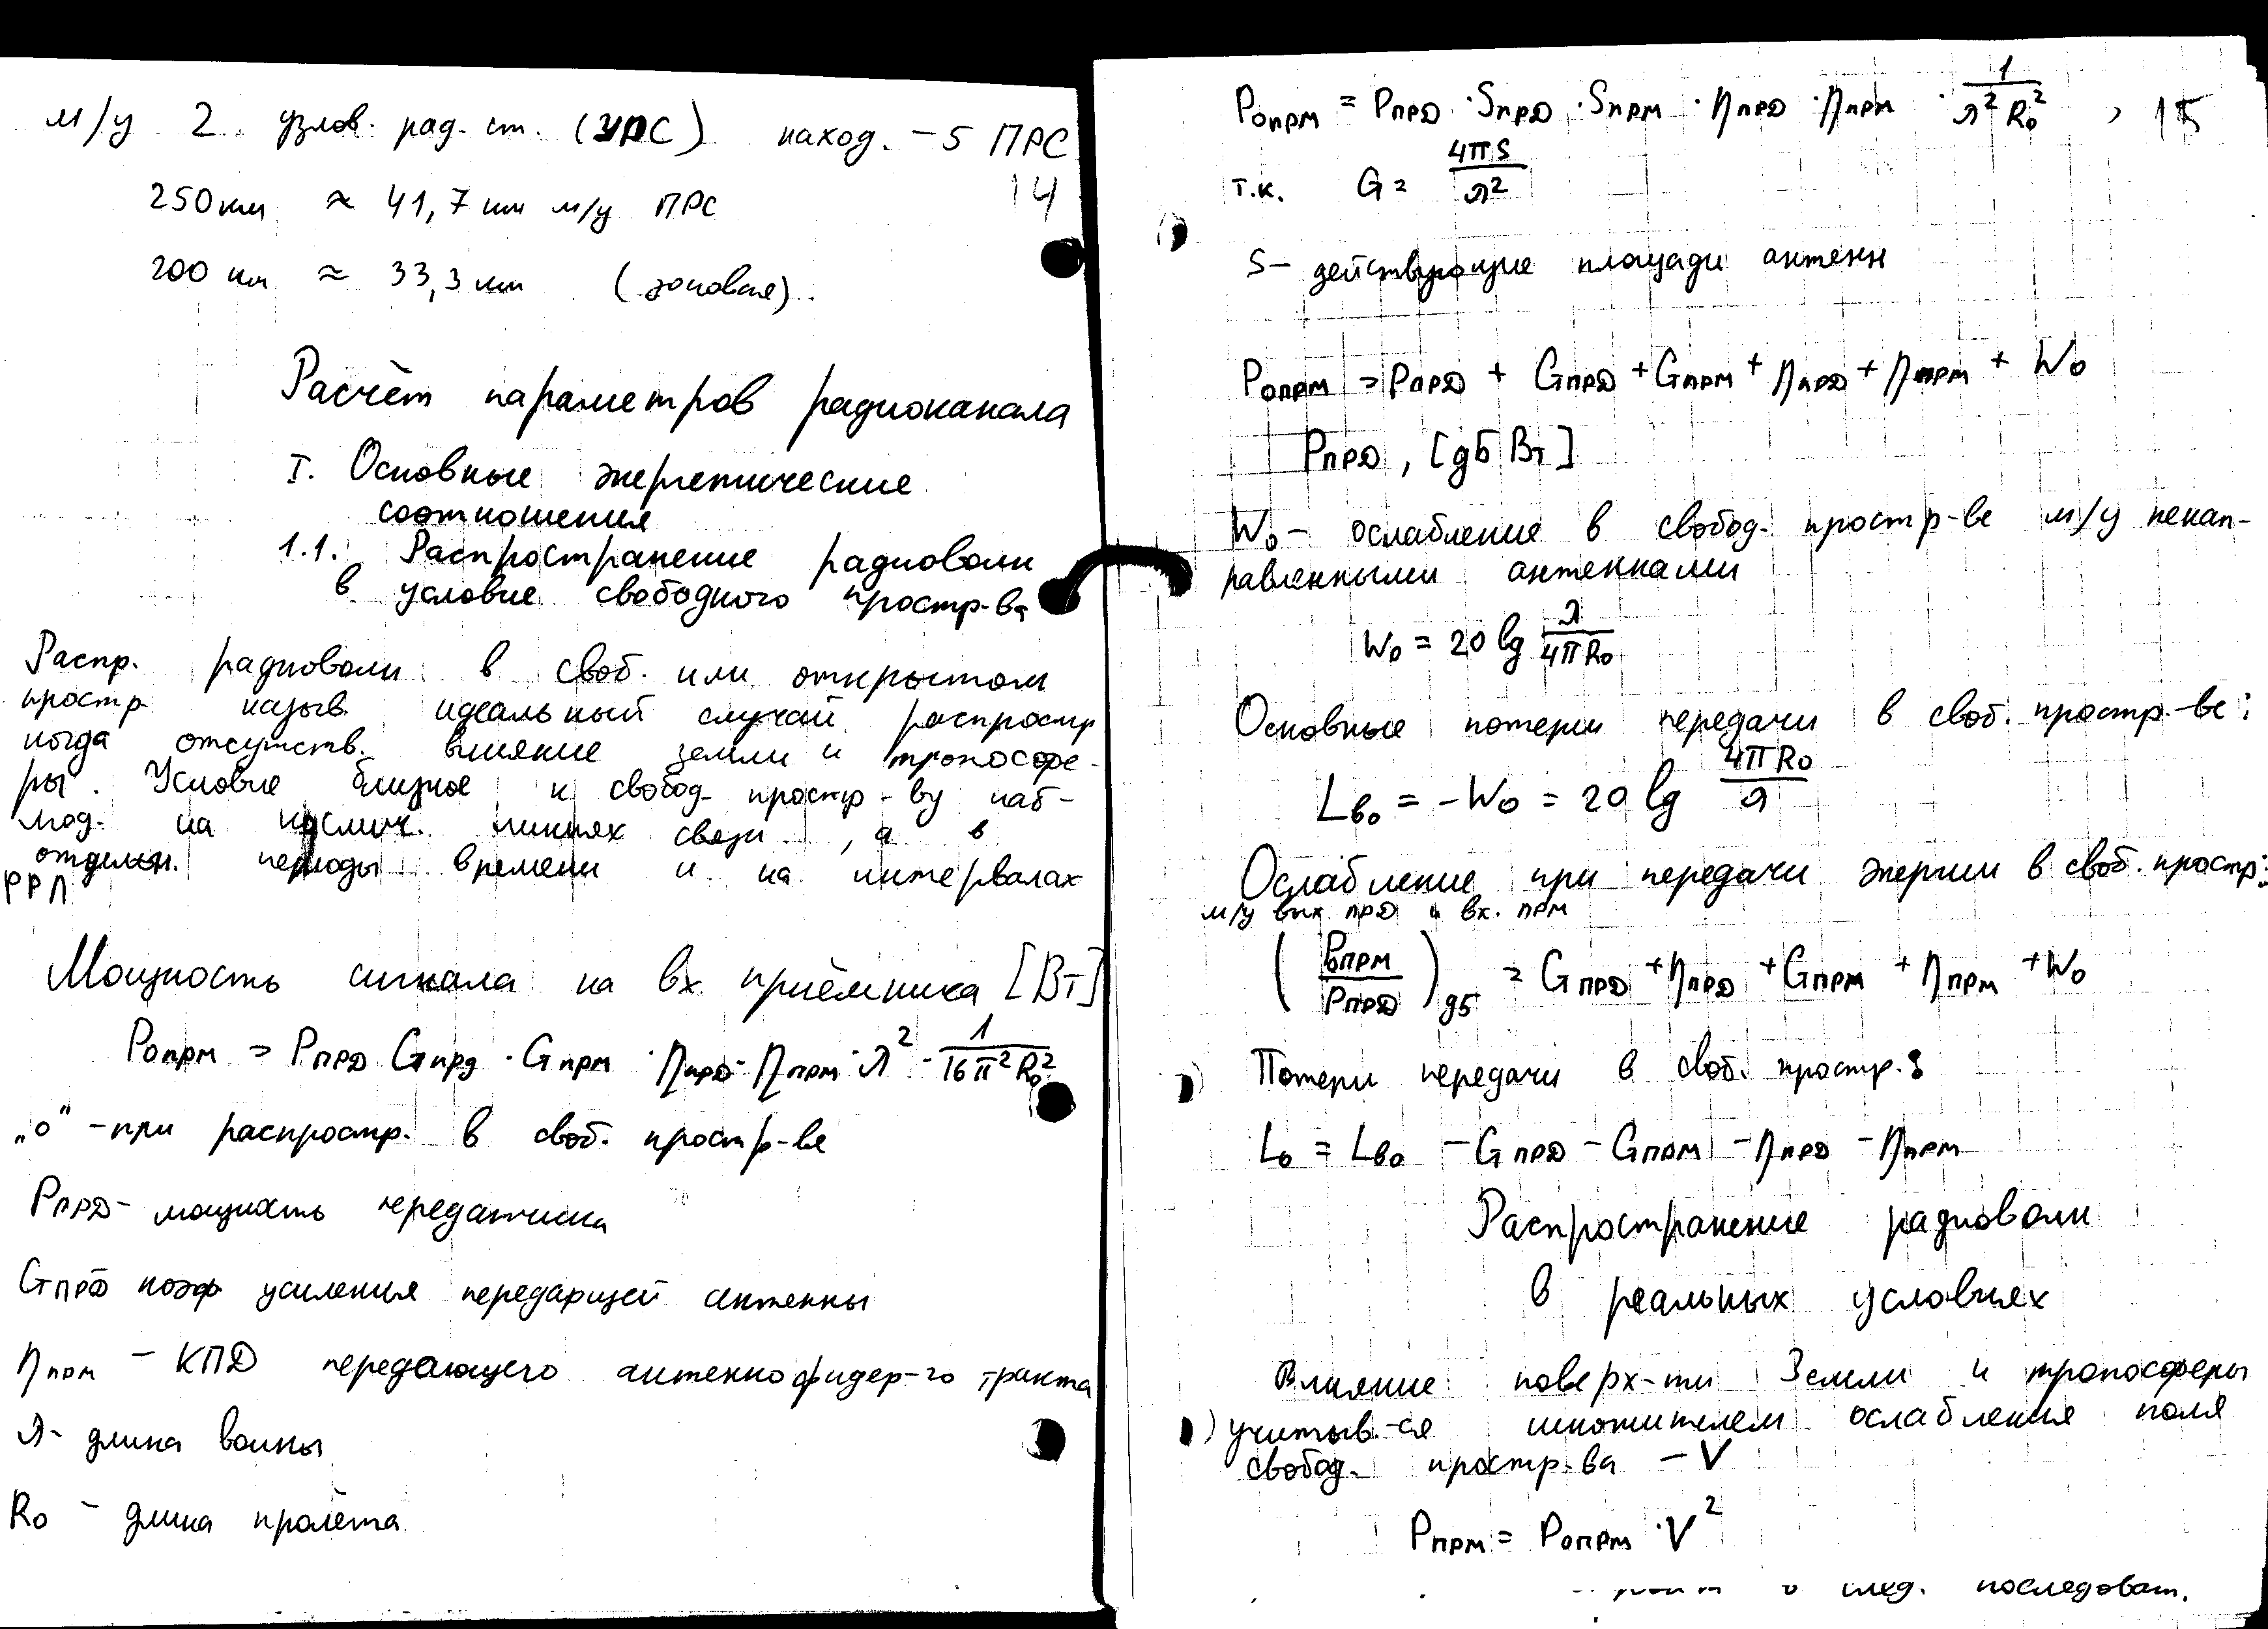 м/у 2 узлов. рад. ст. (УРС) наход. - 5 ПРС
14
250 км ≈ 41,7 км м/у ПРС
200 км ≈ 33,3 км (зоновые).
Расчёт параметров радиоканала
I. Основные энергетические
соотношения
1.1. Распространение радиоволн
в условие свободного простр-ва
Распр. радиоволн в своб. или открытом
простр назыв. идеальный случай распростр
когда отсутств. влияние земли и тропосфе-
ры. Условие близкое к свобод- простр-ву наб-
люд. на космич. линиях связи, а в
отдельн. периоды времени и на интервалах
РРЛ
Мощность сигнала на вх приёмника [Вт]
Pопрм = Pпрд Gпрд · Gпрм · ηпрд · ηпрм · λ² · 1/(16π²R₀²)
„о" - при распростр. в своб. простр-ве
Pпрд - мощность передатчика
Gпрд коэф усиления передающей антенны
ηпрм - КПД передающего антеннофидер-го тракта
λ - длина волны
R₀ - длина пролёта
Pопрм = Pпрд · Sпрд · Sпрм · ηпрд · ηпрм · 1/(λ² R₀²) , 15
т.к. G = 4πS/λ²
S - действующие площади антенн
Pопрм = Pпрд + Gпрд + Gпрм + ηпрд + ηпрм + W₀
Pпрд, [дБ Вт]
W₀ - ослабление в свобод. простр-ве м/у ненап-
равленными антеннами
W₀ = 20 lg λ/(4πR₀)
Основные потери передачи в своб. простр-ве:
Lв₀ = -W₀ = 20 lg 4πR₀/λ
Ослабление при передачи энергии в своб. простр:
м/у вых прд и вх. прм
(Pопрм/Pпрд)дБ = Gпрд + ηпрд + Gпрм + ηпрм + W₀
Потери передачи в своб. простр.:
L₀ = Lв₀ - Gпрд - Gпрм - ηпрд - ηпрм
Распространение радиоволн
в реальных условиях
Влияние поверх-ти Земли и тропосферы
учитыв-ся множителем ослабления поля
свобод- простр-ва - V
Pпрм = Pопрм · V²
след. последоват.